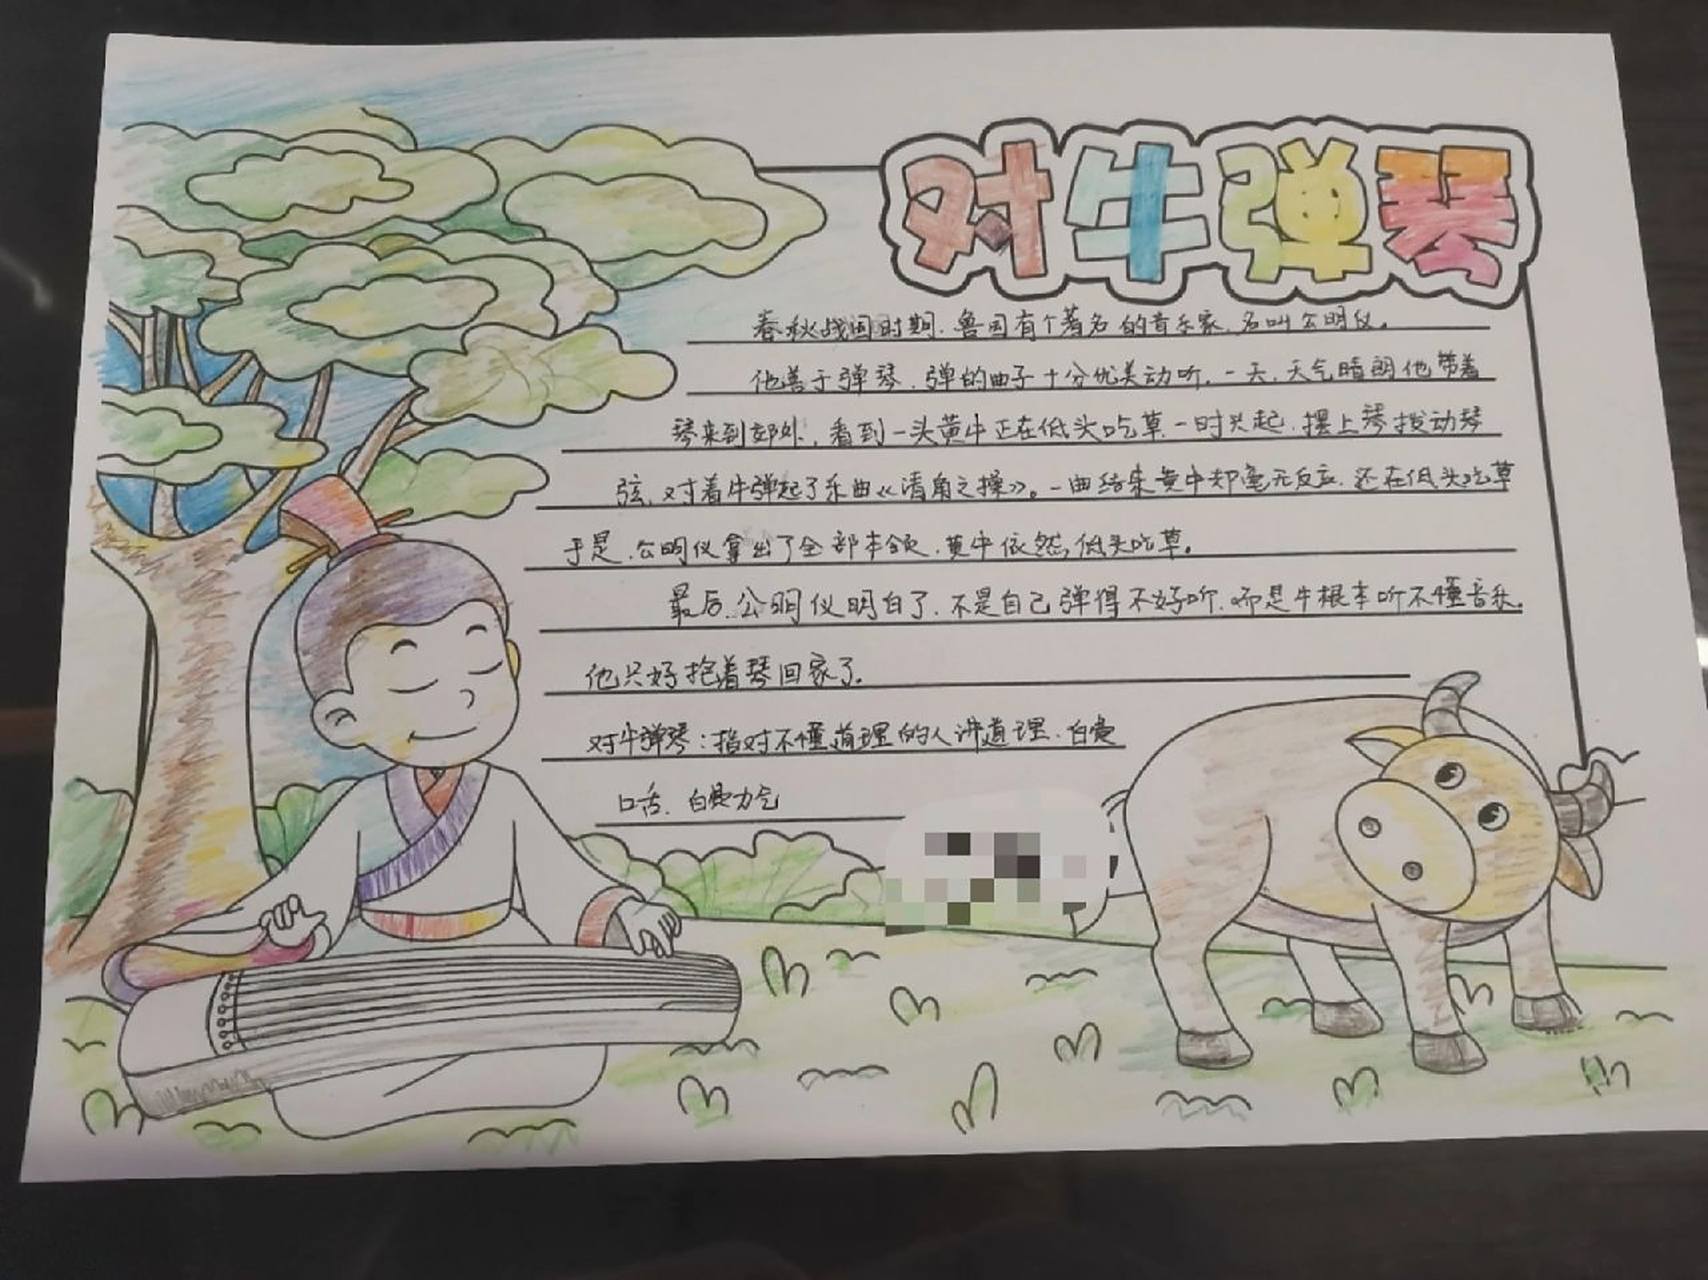 对牛弹琴
春秋战国时期，鲁国有个著名的音乐家，名叫公明仪。
他善于弹琴，弹的曲子十分优美动听，一天，天气晴朗他带着
琴来到郊外，看到一头黄牛正在低头吃草一时兴起，摆上琴拨动琴
弦，对着牛弹起了乐曲《清角之操》。一曲结束黄牛却毫无反应，还在低头吃草
于是，公明仪拿出了全部本领，黄牛依然，低头吃草。
最后，公明仪明白了，不是自己弹得不好听，而是牛根本听不懂音乐。
他只好抱着琴回家了。
对牛弹琴：指对不懂道理的人讲道理，白费
口舌，白费力气